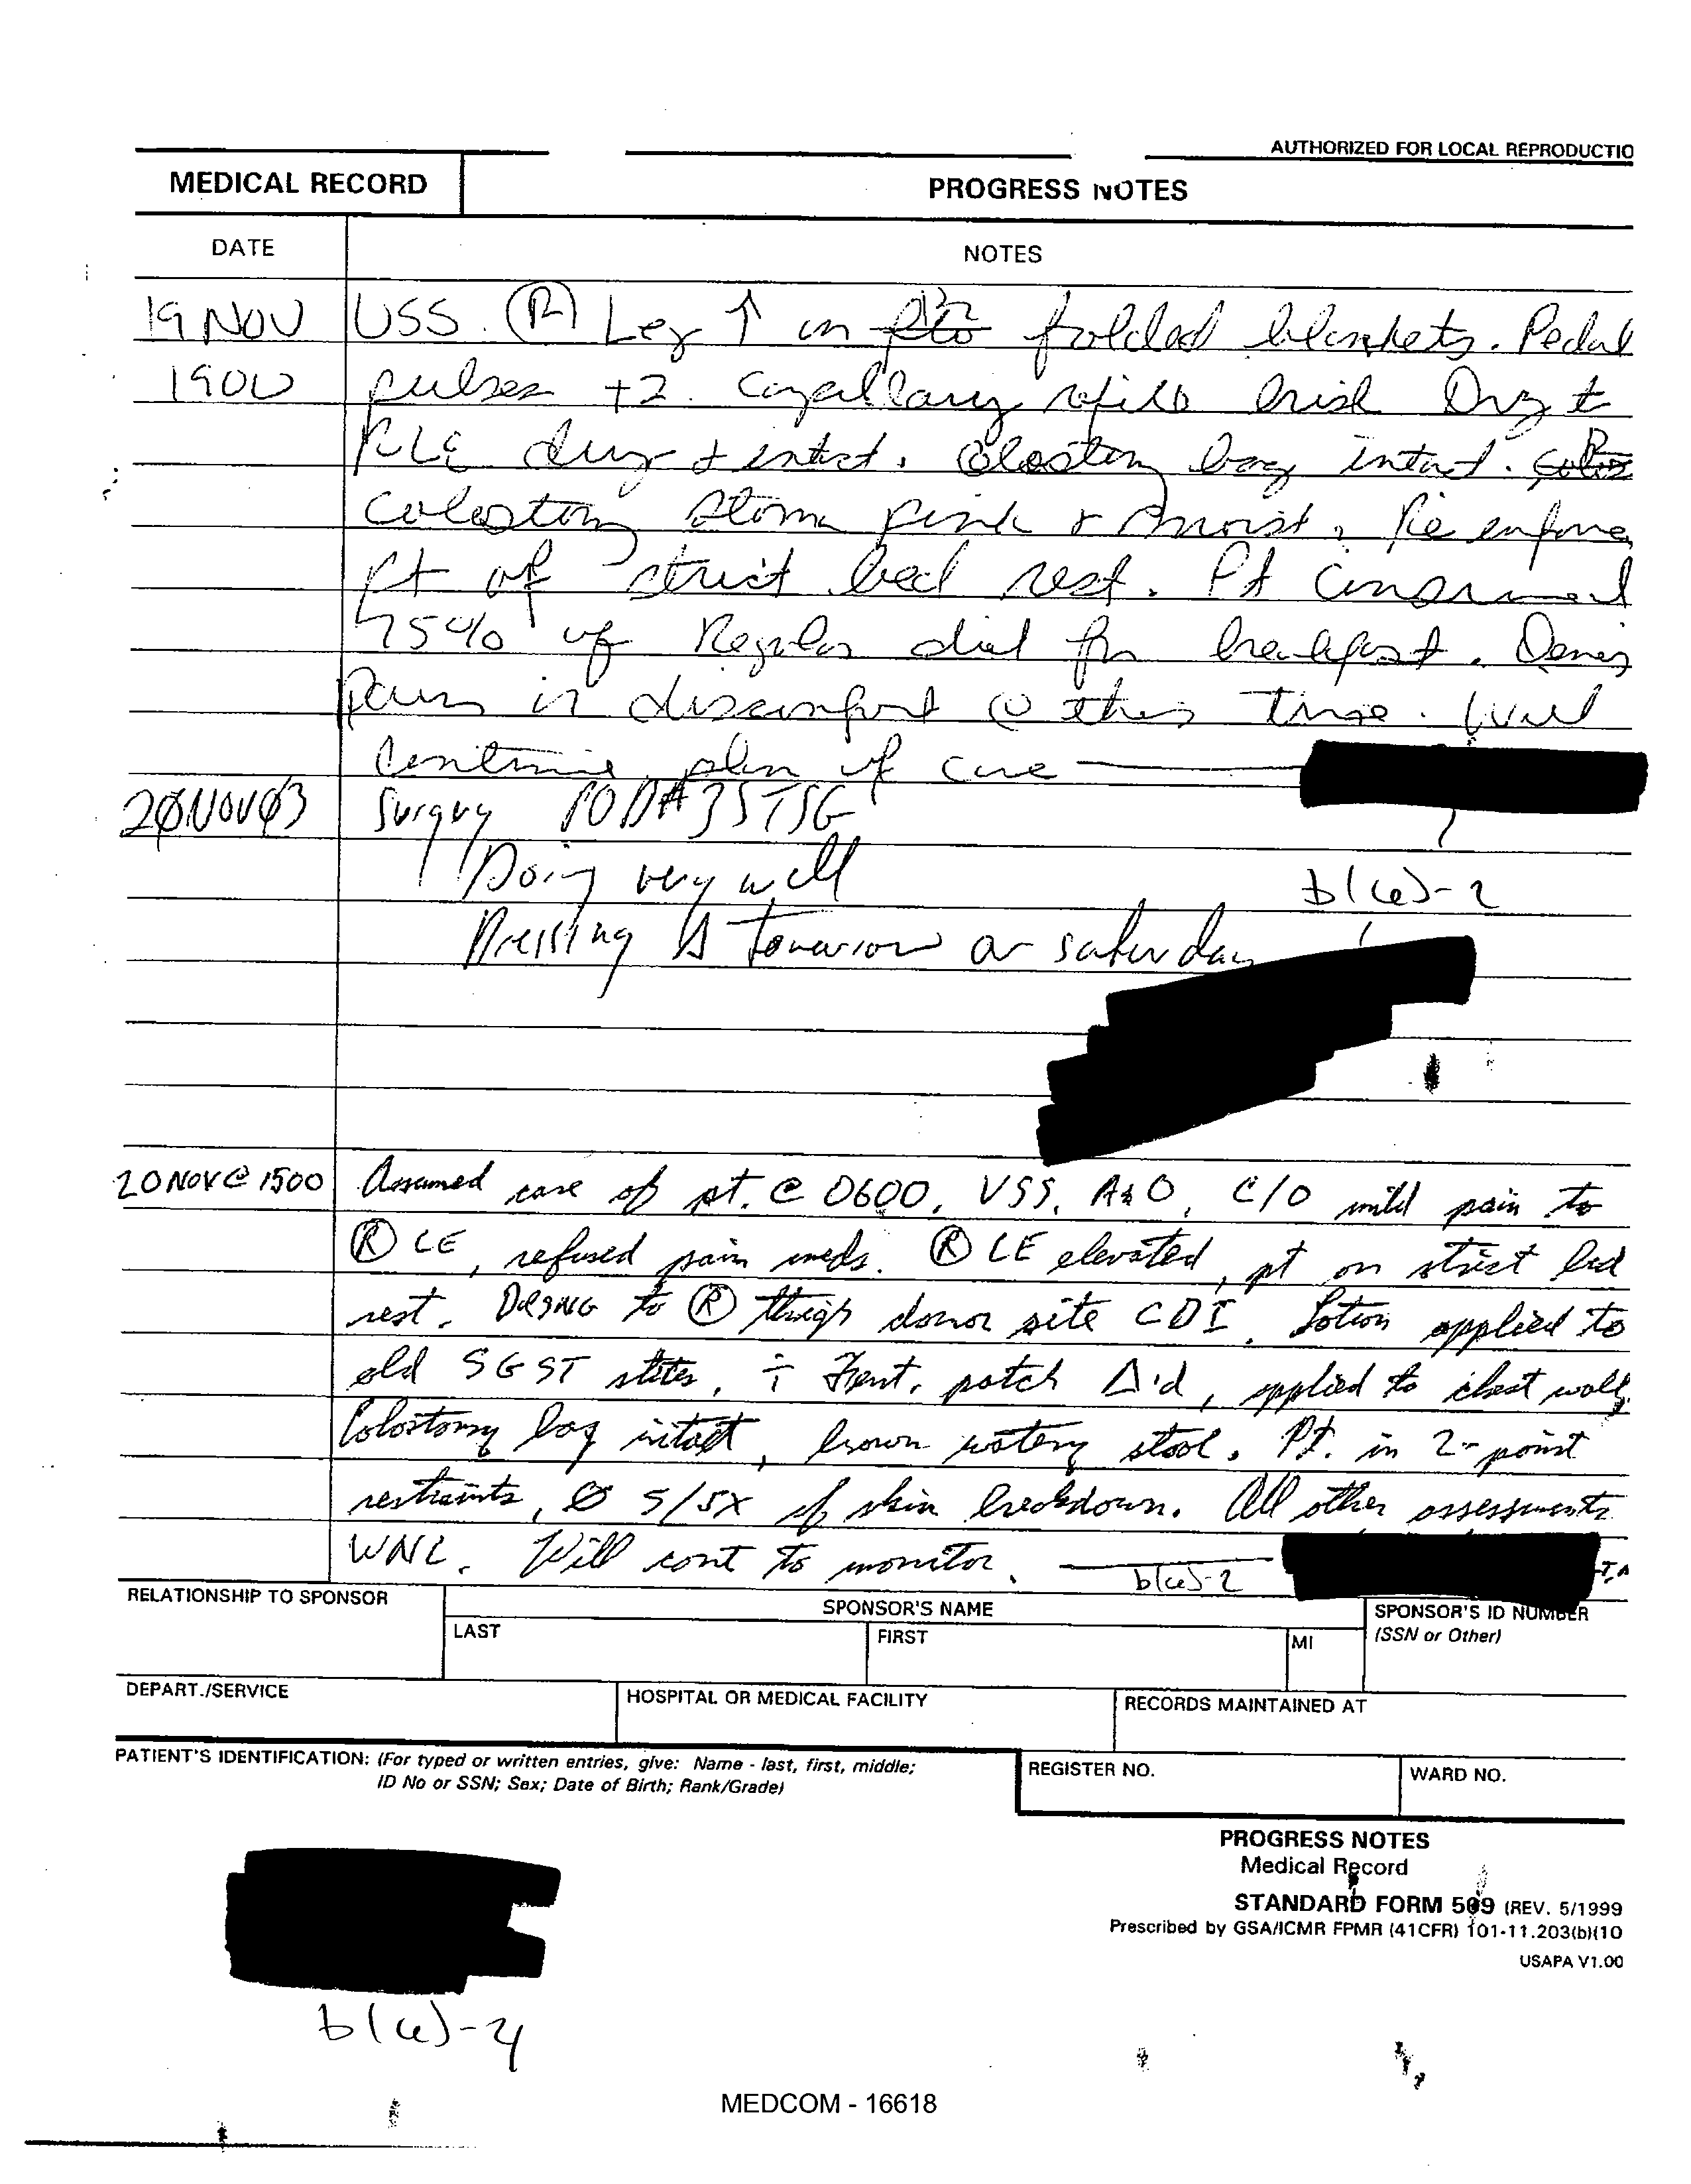 AUTHORIZED FOR LOCAL REPRODUCTIO
MEDICAL RECORD PROGRESS NOTES
DATE NOTES
19 NOV VSS. (R) Leg ↑ on folded blankets. Pedal
1900 pulses +2. Capillary refill brisk Drg to
RLE dry + intact. Colostomy bag intact.
Colostomy stoma pink + moist. Re enforce
Pt of strict bed rest. Pt consumed
75% of Regular diet for breakfast. Denies
Pain or discomfort @ this time. Will
Continue plan of care
20NOV03 Surgery POD#3 STSG
Doing very well
b(6)-2
Dressing Δ tomorrow or saturday
20 NOV @ 1500 Assumed care of pt. @ 0600, VSS, A&O, C/O mild pain to
(R) LE, refused pain meds. (R) LE elevated, pt on strict bed
rest. DRSNG to (R) thigh donor site CDI. Lotion applied to
old SGST sites, Fent. patch Δ'd, applied to chest wall,
Colostomy bag intact, brown watery stool. Pt. in 2-point
restraints, Ø S/SX of skin breakdown. All other assessments
WNL. Will cont to monitor.
b(6)-2
RELATIONSHIP TO SPONSOR SPONSOR'S NAME SPONSOR'S ID NUMBER
LAST FIRST MI (SSN or Other)
DEPART./SERVICE HOSPITAL OR MEDICAL FACILITY RECORDS MAINTAINED AT
PATIENT'S IDENTIFICATION: (For typed or written entries, give: Name - last, first, middle;
ID No or SSN; Sex; Date of Birth; Rank/Grade)
REGISTER NO. WARD NO.
PROGRESS NOTES
Medical Record
STANDARD FORM 509 (REV. 5/1999
Prescribed by GSA/ICMR FPMR (41CFR) 101-11.203(b)(10
USAPA V1.00
b(6)-4
MEDCOM - 16618